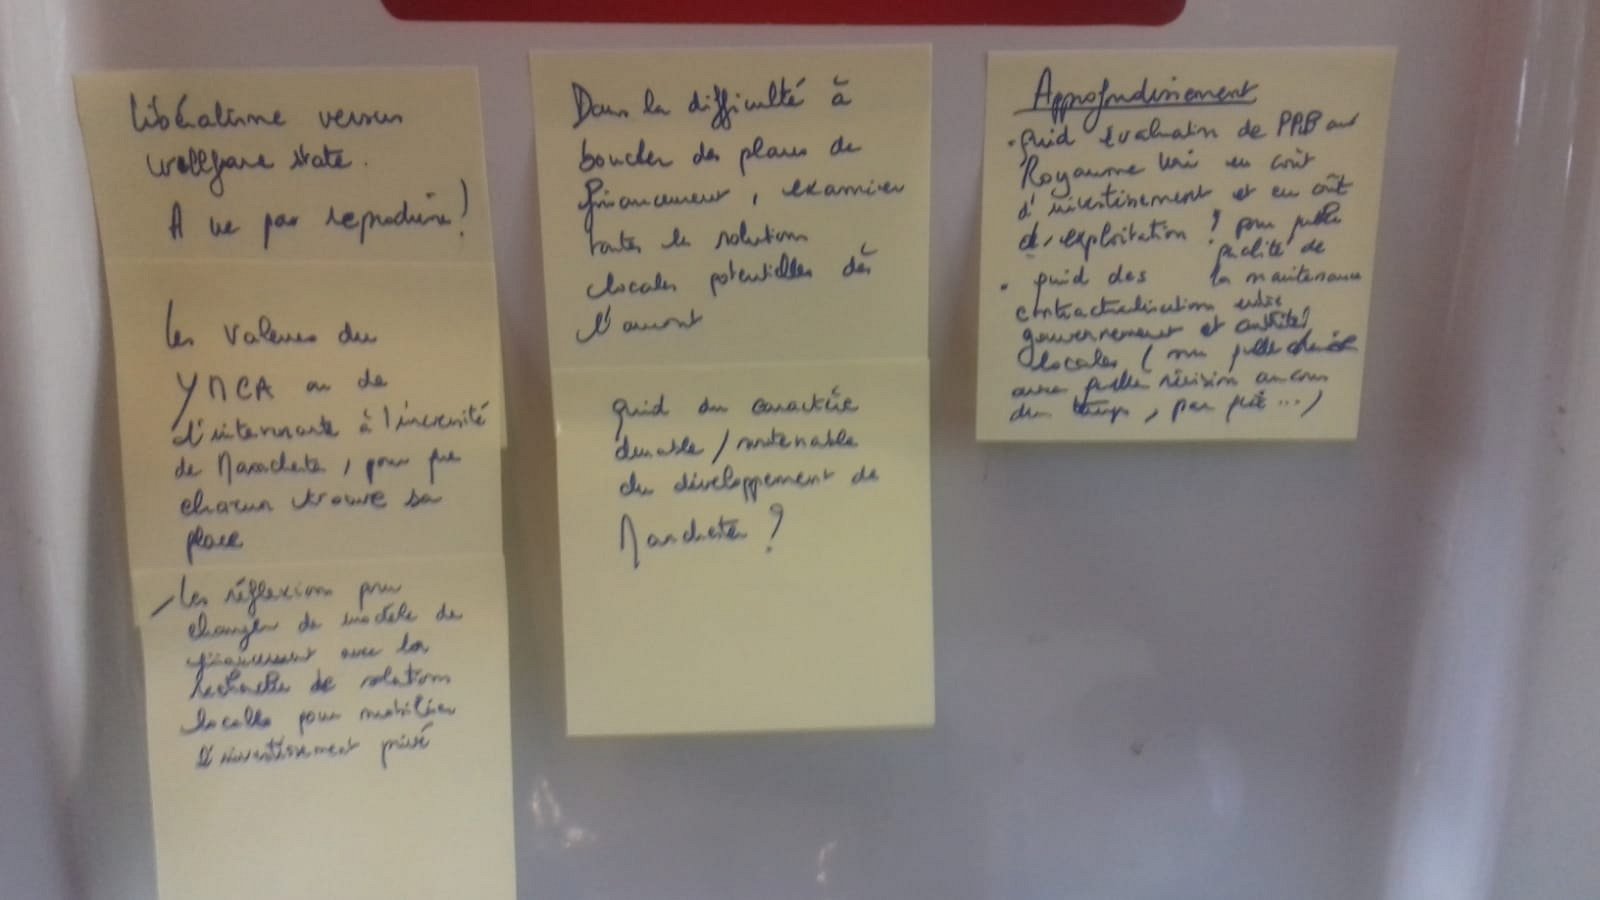 Libéralisme versus
wellfare state.
A ne pas reproduire !
Les valeurs du
YMCA ou de
d'intervenante à l'université
de Manchester, pour que
chacun trouve sa
place
Les réflexions pour
changer de modèle de
financement avec la
recherche de solutions
locales pour mobiliser
l'investissement privé
Dans la difficulté à
boucler des plans de
financement, examiner
toutes les solutions
locales potentielles dès
l'amont
quid du caractère
durable / soutenable
du développement de
Manchester ?
Approfondissement
• quid évaluation de au
Royaume Uni en coût
d'investissement et en coût
d'exploitation ? pour quelle
qualité de
la maintenance
• quid des
contractualisations entre
gouvernement et autorités
locales ( sur quelle durée
avec quelle révision au cours
du temps, par qui ...)